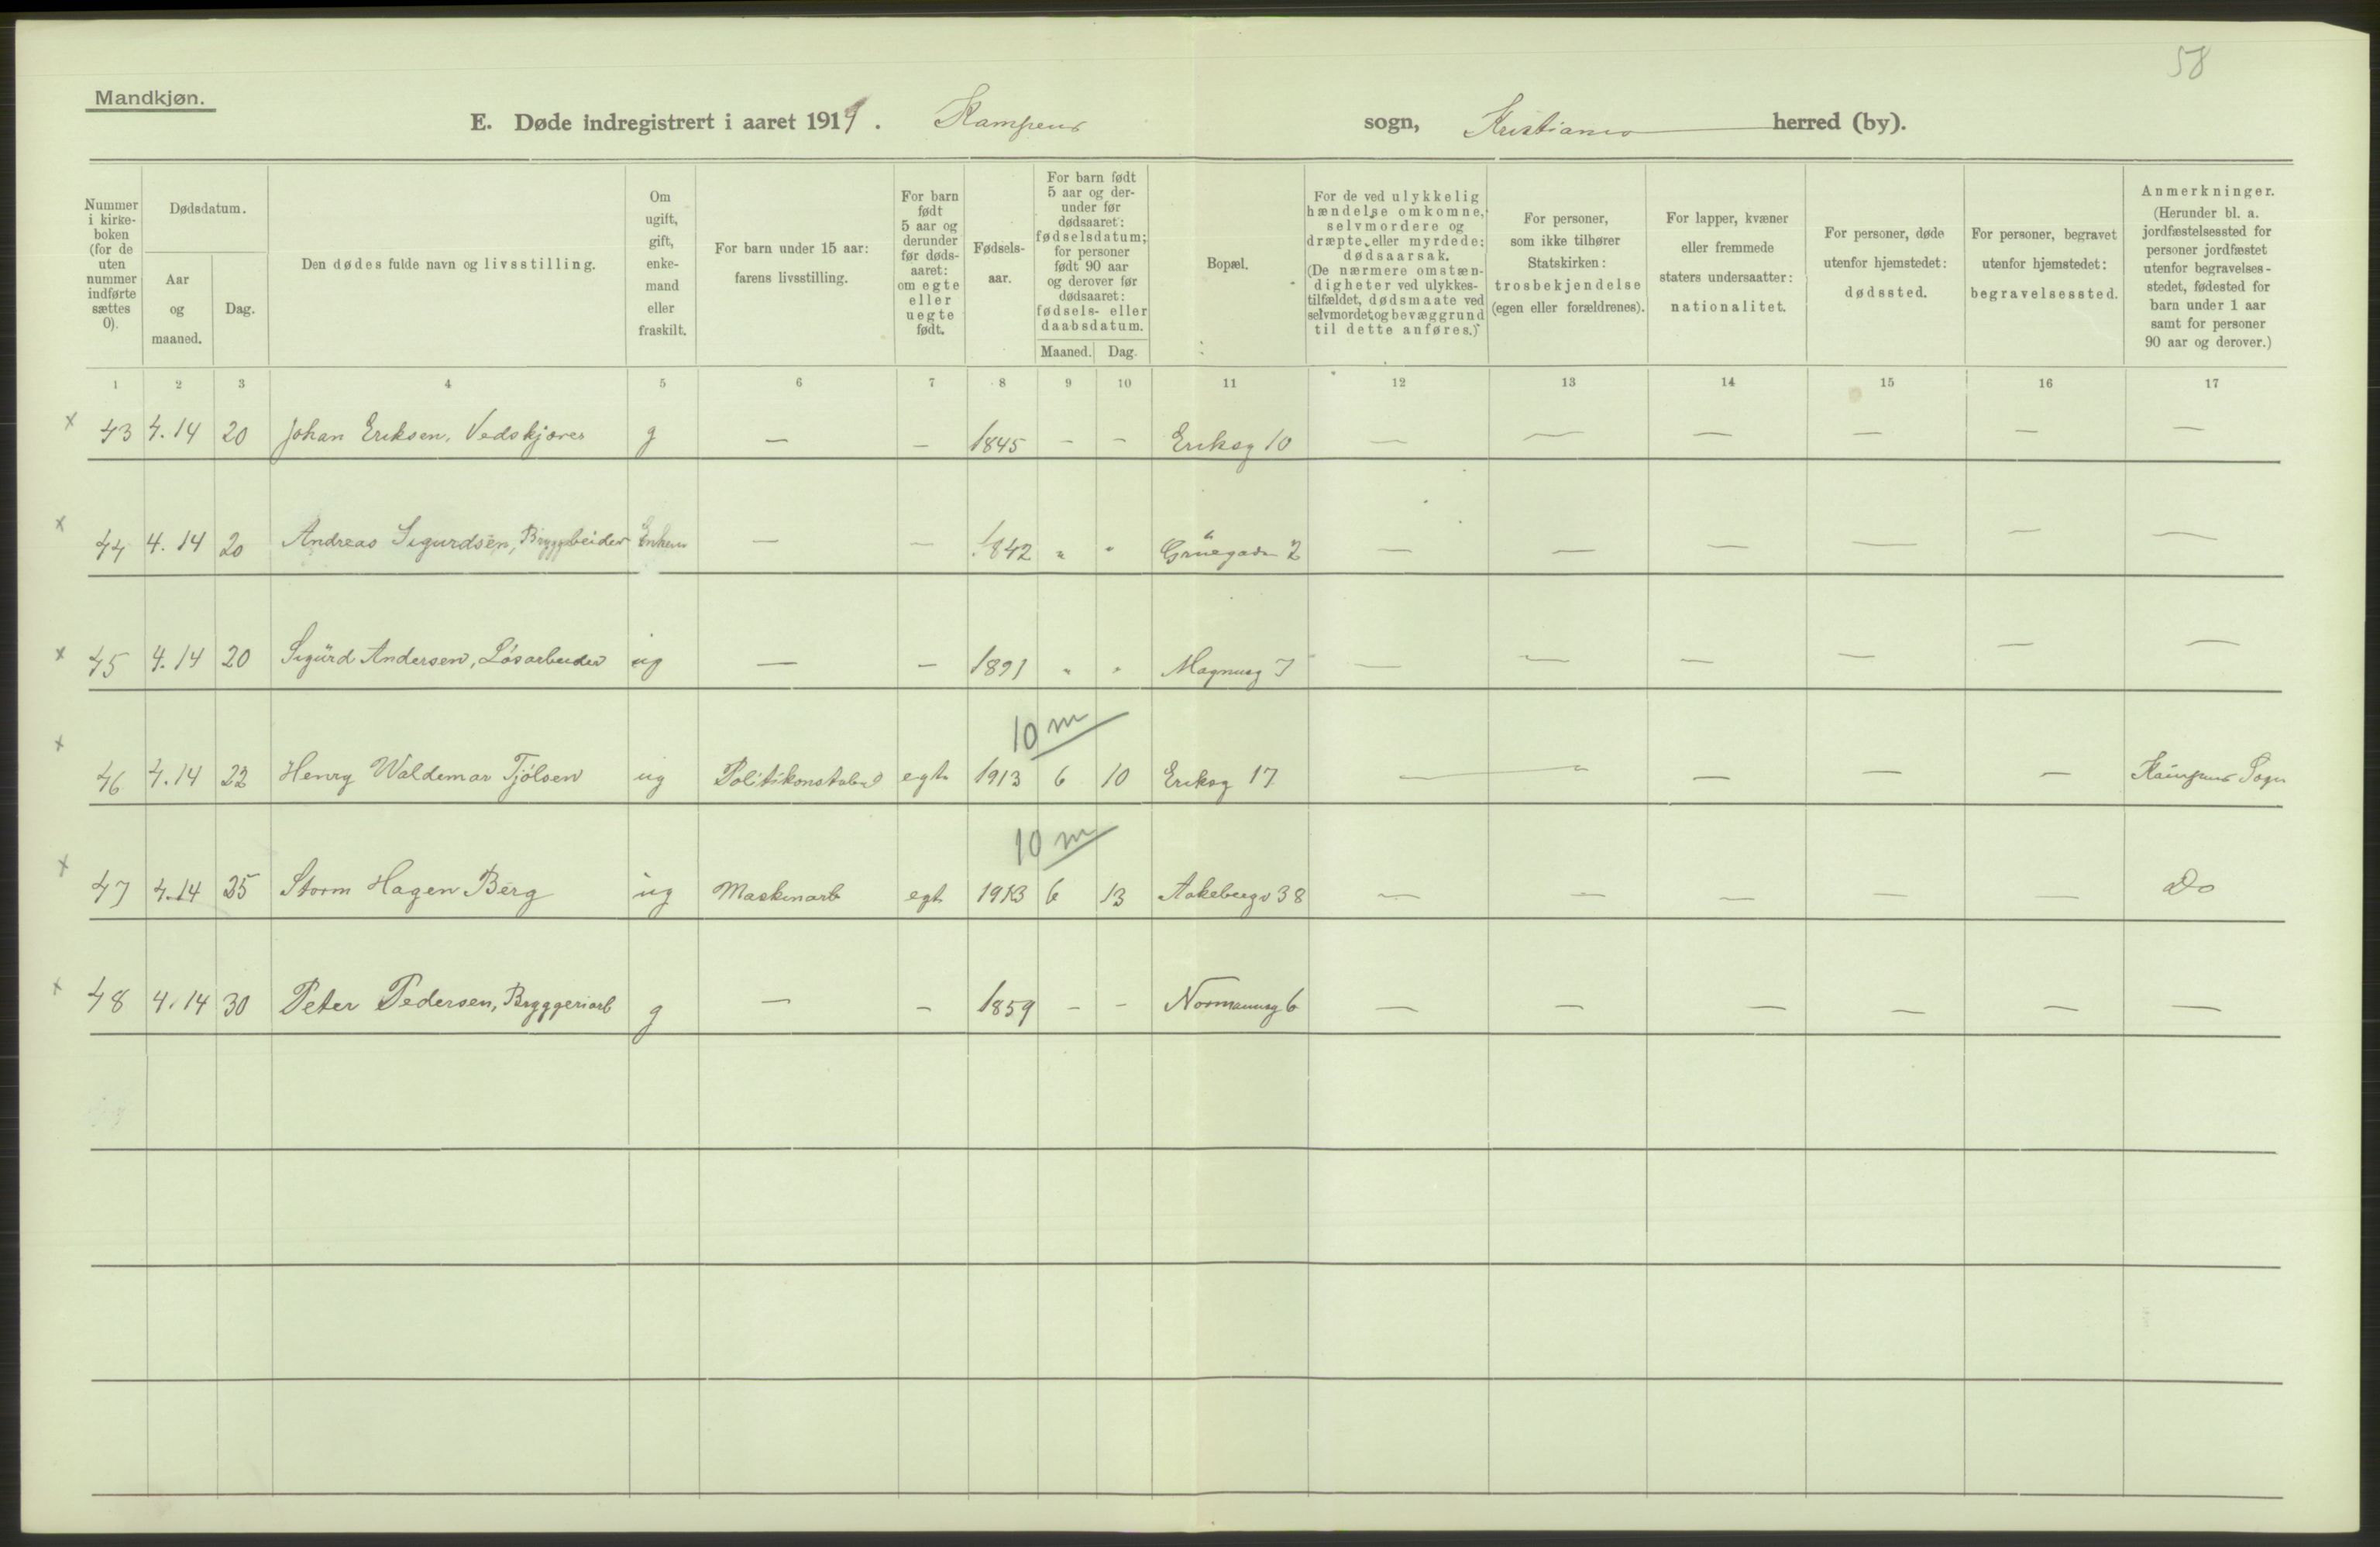 58
Mandkjøn.
E. Døde indregistrert i aaret 1914. Kampens sogn, Kristiania herred (by).
Nummer i kirke-boken (for de uten nummer indførte sættes 0).
Dødsdatum.
Aar og maaned.
Dag.
Den dødes fulde navn og livsstilling.
Om ugift, gift, enke-mand eller fraskilt.
For barn under 15 aar: farens livsstilling.
For barn født 5 aar og derunder før døds-aaret: om egte eller uegte født.
Fødsels-aar.
For barn født 5 aar og der-under før dødsaaret: fødselsdatum; for personer født 90 aar og derover før dødsaaret: fødsels- eller daabsdatum.
Maaned.
Dag.
Bopæl.
For de ved ulykkelig hændelse omkomne, selvmordere og dræpte eller myrdede: dødsaarsak. (De nærmere omstæn-digheter ved ulykkes-tilfældet, dødsmaate ved selvmordet og bevæggrund til dette anføres.)
For personer, som ikke tilhører Statskirken: trosbekjendelse (egen eller forældrenes).
For lapper, kvæner eller fremmede staters undersaatter: nationalitet.
For personer, døde utenfor hjemstedet: dødssted.
For personer, begravet utenfor hjemstedet: begravelsessted.
Anmerkninger. (Herunder bl. a. jordfæstelsessted for personer jordfæstet utenfor begravelses-stedet, fødested for barn under 1 aar samt for personer 90 aar og derover.)
1 2 3 4 5 6 7 8 9 10 11 12 13 14 15 16 17
x 43 4.14 20 Johan Eriksen, Vedskjærer g — — 1845 - - Eriksg 10 — — — — — —
x 44 4.14 20 Andreas Sigurdsen, Bryggebeider Enkem — — 1842 " " Grüegaden 2 — — — — — —
x 45 4.14 20 Sigurd Andersen, Løsarbeider ug — — 1891 " " Magnusg 7 — — — — — —
10 m
x 46 4.14 22 Henry Waldemar Tjølsen ug Politikonstabel egte 1913 6 10 Eriksg 17 — — — — Kampens Sogn
10 m
x 47 4.14 25 Storm Hagen Berg ug Maskinarb egte 1913 6 13 Aakebergv 38 — — — — — Do
x 48 4.14 30 Peter Pedersen, Bryggeriarb g — — 1859 - - Normannsg 6 — — — — — —